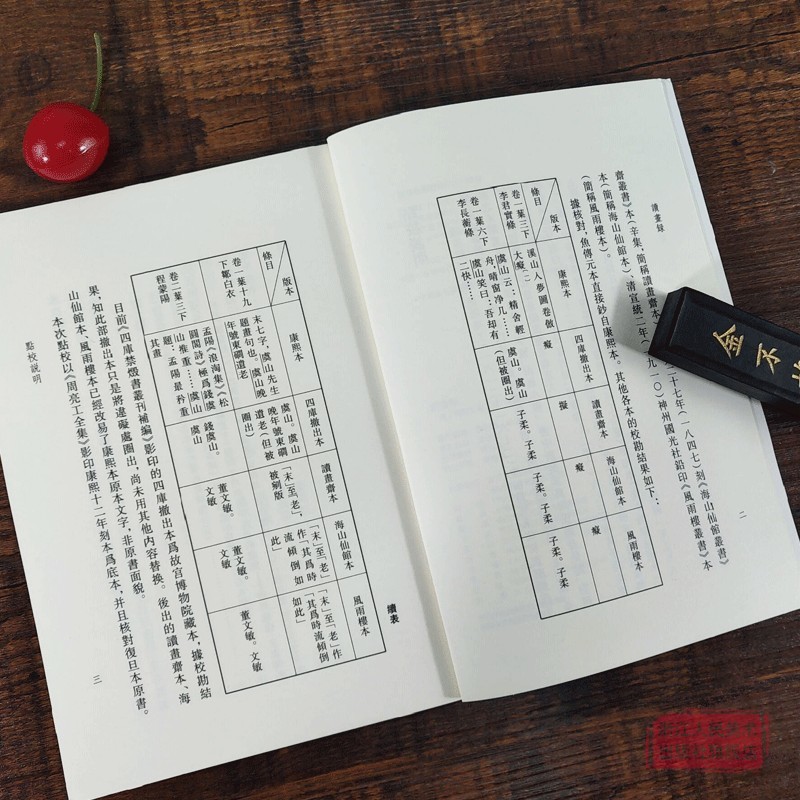 讀畫録
齋叢書》本(辛集,簡稱讀畫齋本
二十七年(一八四七)刻《海山仙館叢書》
本(簡稱海山仙館本)、清宣統二年(
九一〇)神州國光社鉛印《風雨樓叢書》本
(簡稱風雨樓本)。
據核對,魚傳元本直接鈔自康熙本。其他各本的校勘結果如下:
版本
條目
康熙本
四庫撤出本
讀畫齋本
海山仙館本
風雨樓本
卷一葉三下
李君實條
溪山人夢圖卷倣
大癡(一)
擬
擬
癡
癡
卷一葉六下
李長蘅條
虞山云:精舍輕
舟,晴窗净几……
虞山笑曰:吾却有
二快……
虞山。虞山
(但被圈出)
子柔。子柔
子柔。子柔
子柔。子柔
二
金不
續表
版本
條目
康熙本
四庫撤出本
讀畫齋本
海山仙館本
風雨樓本
卷一葉十九
下鄒白衣
末七字,虞山先生
題畫句也。虞山晚
年號東磵遺老
虞山。虞山
晚年號東磵
遺老(但被
圈出)
「末」至「老」,
被剜版
「末」至「老」
作「其爲時
流傾倒如
此」
「末」至「老」作
「其爲時流傾倒
如此」
卷二葉三下
程蒙陽
孟陽《浪淘集》《松
圓閣詩》極爲錢虞
山推重……虞山
題:孟陽最矜重
其畫
錢虞山。
虞山
董文敏。
文敏
董文敏。
文敏
董文敏。文敏
目前《四庫禁燬書叢刊補編》影印的四庫撤出本爲故宮博物院藏本,據校勘結
果,知此部撤出本只是將違礙處圈出,尚未用其他内容替換。後出的讀畫齋本、海
山仙館本、風雨樓本已經改易了康熙本原本文字,非原書面貌。
本次點校以《周亮工全集》影印康熙十二年刻本爲底本,并且核對復旦本原書。
點校説明
三